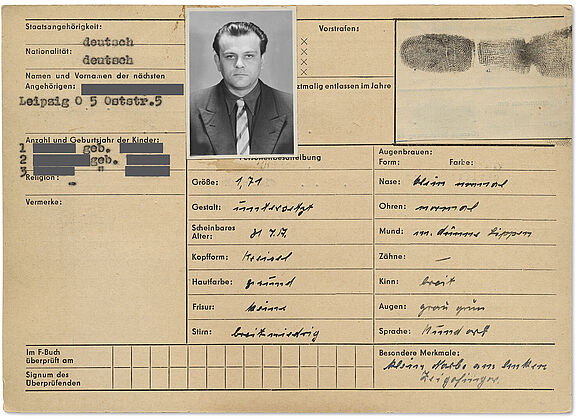 Staatsangehörigkeit:
deutsch
Nationalität:
deutsch
Namen und Vornamen der nächsten
Angehörigen:
Leipzig O 5 Oststr.5
Anzahl und Geburtsjahr der Kinder:
1 geb.
2 geb.
3 "
Religion: -
Vermerke:
Im F-Buch
überprüft am
Signum des
Überprüfenden
Vorstrafen:
tzmalig entlassen im Jahre
Personenbeschreibung
Größe: 1,71
Gestalt: untersetzt
Scheinbares
Alter:
Kopfform:
Hautfarbe: gesund
Frisur:
Stirn: breit niedrig
Augenbrauen:
Form: Farbe:
Nase: klein normal
Ohren: normal
Mund: m. dünne Lippen
Zähne: —
Kinn: breit
Augen: grau grün
Sprache: Mundart
Besondere Merkmale:
kleine Narbe am linken
Zeigefinger.